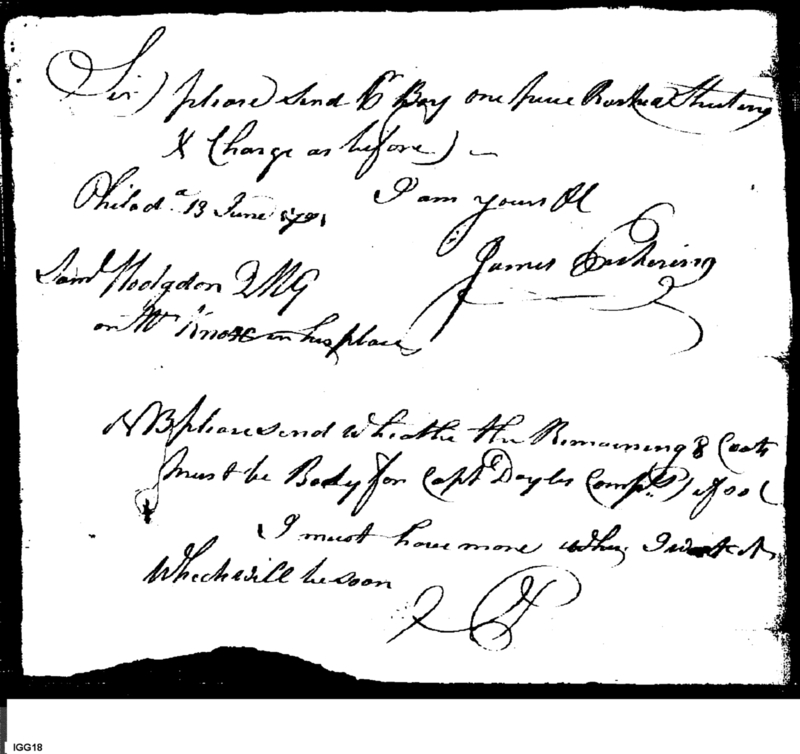 Sir) please send pr Boy one piece Rushea Sheeting
& Charge as before) —
Philada 13 June 1791
I am yours &c
James Pickering
Saml Hodgdon QMG
or Mr Knox in his place
NB please send Wheathe the Remaining 8 Coats
Must be Body for Capt Doyles Compy) if so
I must have more I want it
Which will be soon
JP
IGG18